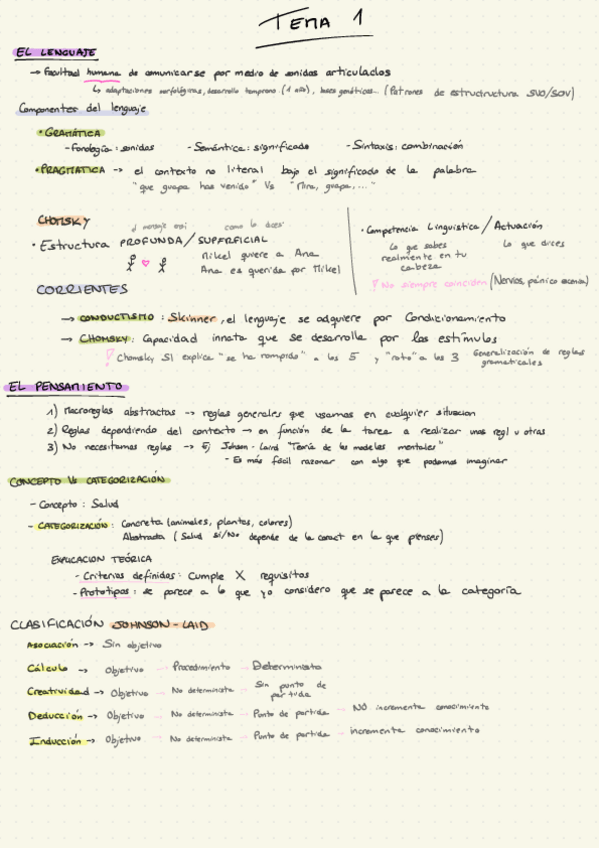 TEMA 1
EL LENGUAJE
→ Facultad humana de comunicarse por medio de sonidos articulados
↳ adaptaciones morfológicas, desarrollo temprano (1 año), bases genéticas... (Patrones de estructructura SVO/SOV)
Componentes del lenguaje
• GRAMÁTICA
- Fonología: sonidas - Semántica: significado - Sintaxis: combinación
• PRAGMÁTICA → el contexto no literal bajo el significado de la palabra
"que guapa has venido" Vs "Mira, guapa,..."
CHOMSKY
como lo dices
• Estructura PROFUNDA / SUPERFICIAL
Mikel quiere a Ana
Ana es querida por Mikel
• Competencia Linguistica / Actuación
Lo que sabes realmente en tu cabeza
Lo que dices
! No siempre coinciden (Nervios, pánico escenico)
CORRIENTES
→ CONDUCTISMO: Skinner, el lenguaje se adquiere por Condicionamiento
→ CHOMSKY: Capacidad innata que se desarrolla por los estímulos
! Chomsky SI explica "se ha rompido" a los 5 y "roto" a los 3 Generalización de reglas gramaticales
EL PENSAMIENTO
1) Macroreglas abstractas → reglas generales que usamos en cualquier situacion
2) Reglas dependiendo del contexto → en función de la tarea a realizar unas regl u otras
3) No necesitamos reglas → Ej Johson-Laird "Teoría de los modelos mentales"
- Es más fácil razonar con algo que podamos imaginar
CONCEPTO Vs CATEGORIZACIÓN
- Concepto: Salud
- CATEGORIZACIÓN: Concreta (animales, plantas, colores)
Abstracta (Salud sí/No depende de la caract en la que pienses)
EXPLICACION TEÓRICA
- Criterios definidos: Cumple X requisitos
- Prototipos: se parece a lo que yo considero que se parece a la categoría
CLASIFICACIÓN JOHNSON-LAID
Asociación → Sin objetivo
Cálculo → Objetivo → Procedimiento → Determinista
Creatividad → Objetivo → No determinista → Sin punto de partida
Deducción → Objetivo → No determinista → Punto de partida → NO incrementa conocimiento
Inducción → Objetivo → No determinista → Punto de partida → incrementa conocimiento